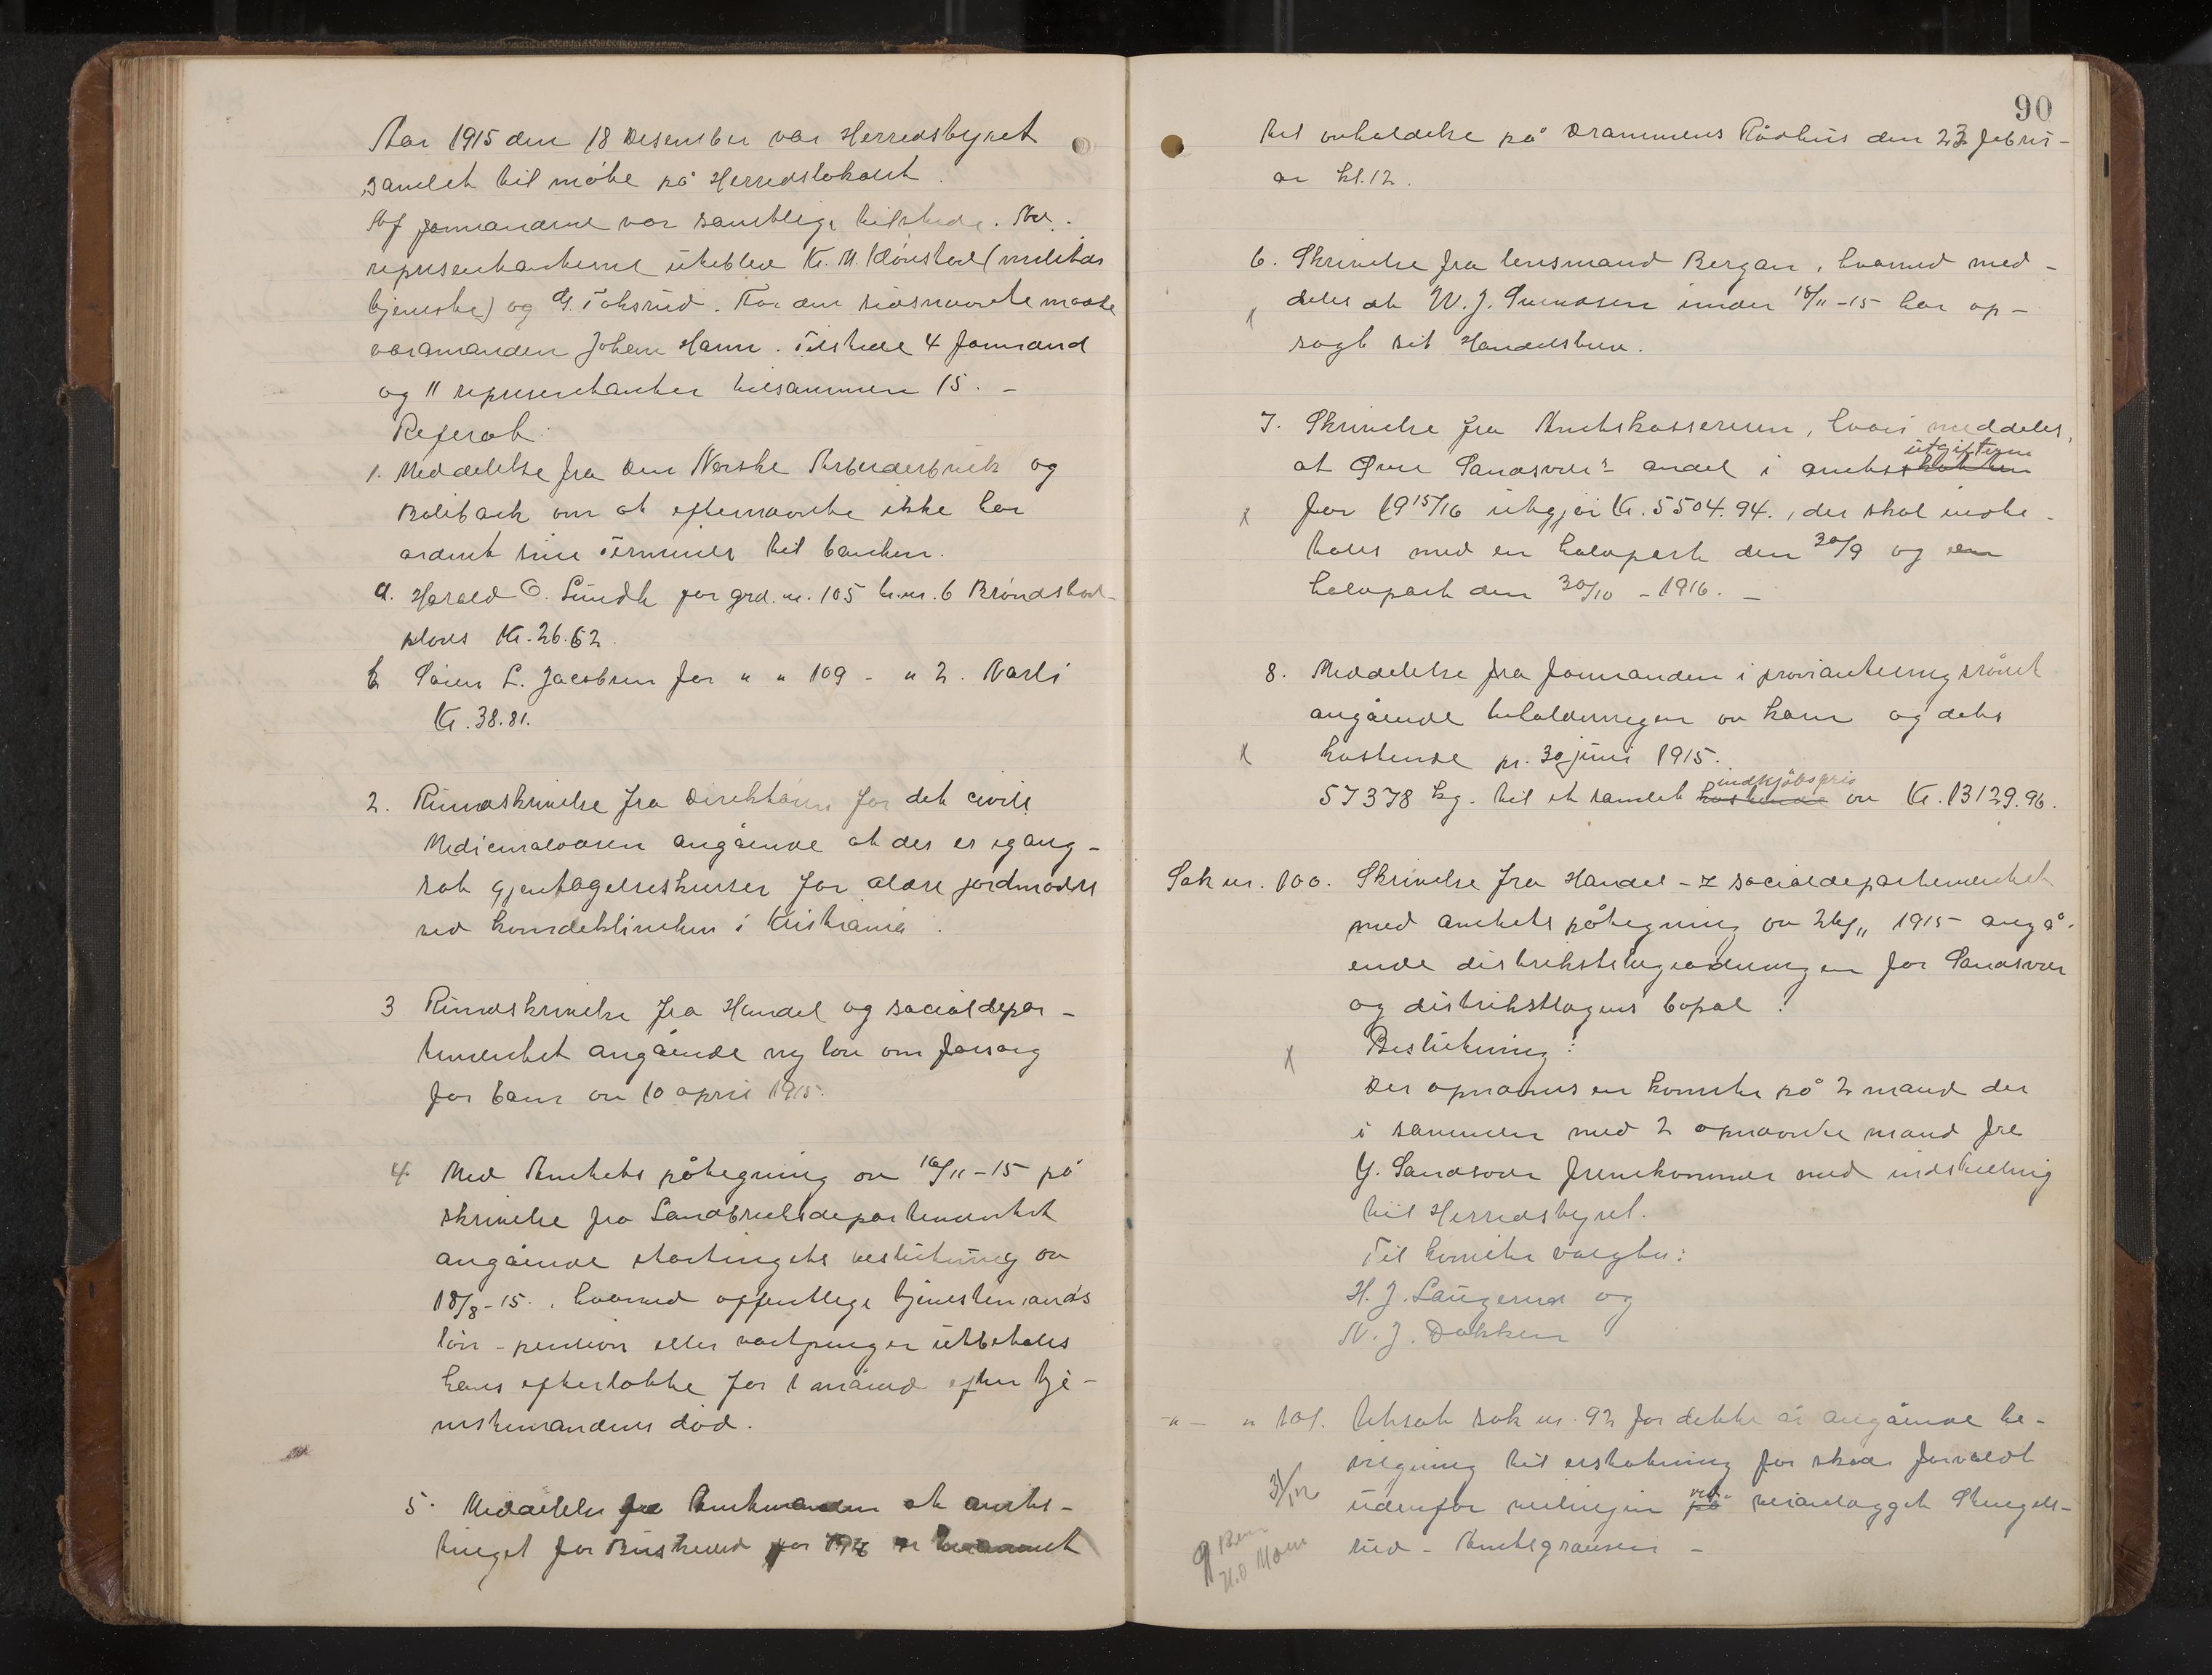 Aar 1915 den 18 Desember var Herredsstyret
samlet til møte på Herredslokalet.
Af formændene var samtlige tilstede. Av
representanterne uteblev Kr. M. (militær
tjeneste) og G. Toksrud. For den sidsnævnte møtte
varamanden Johan Hamn. Tilstede 4 formænd
og 11 representanter tilsammen 15. –
Referat:
1. Meddelelse fra Den Norske Arbeiderbruk og
Boligbank om at efternævnte ikke har
ordnet sine Terminer til banken.
a. Harald O. Lundh for grd. nr. 105 br.nr. 6 Brøndstad-
plads Kr. 26.62.
b Søren L. Jacobsen for " " 109 - " 2. Narli
Kr. 38.81.
2. Rundskrivelse fra Direktøren for det civile
Medicinalvæsen angående at der er igang-
sat gjentagelseskurser for ældre jordmødre
ved kvindeklinikken i Kristiania.
3 Rundskrivelse fra Handel og socialdepar-
tementet angående ny lov om forsorg
for barn av 10 april 1915.
4 Med Amtets påtegning av 16/11-15 på
skrivelse fra Landbruksdepartementet
angående stortingets beslutning av
18/8-15., hvorved offentlige tjenestemænds
løn - pension eller vartpenger utbetales
hans efterlatte for 1 måned efter tje-
nestemandens død.
5. Meddelelse fra Amtmanden at amts-
tinget for Buskerud for 1916 er berammet
90
til avholdelse på Drammens Rådhus den 23 febru-
ar kl. 12.
6. Skrivelse fra lensmand Bergan, hvorved med-
deles at W. J. Svendsen under 18/11-15 har op-
x
sagt sit Handelsbrev.
7. Skrivelse fra Amtskassereren, hvori meddeles,
utgifterne
at Øvre Sandsværs andel i amtsskatten
x for 1915/16 utgjør Kr. 5504.94., der skal inbe-
tales med en halvpart den 30/9 og en
halvpart den 30/10 - 1916. –
8. Meddelelse fra formanden i provianteringsrådet
angående beholdningen av korn og dets
x kostende pr. 30 juni 1915.
indkjøbspris
57378 kg. til et samlet kostende av Kr. 13129.96.
Sak nr. 100. Skrivelse fra Handel - & socialdepartementet
med amtets påtegning av 26/11 1915 angå-
ende distriktslægeordningen for Sandsvær
og distriktslægens bopæl.
x Beslutning:
Der opnævnes en komite på 2 mand der
i sammen med 2 opnævnte mand fra
Y. Sandsvær fremkommer med indstilling
til Herredsstyret.
Til komite valgtes:
H. J. Laugerud og
N. J. Dokken
-"- " 101. Utsat sak nr. 92 for dette år angående be-
vilgning til erstatning for skade forvoldt
31/12
ved
udenfor veilinjen på veianlægget Stengels-
rud - Amtsgrænsen –